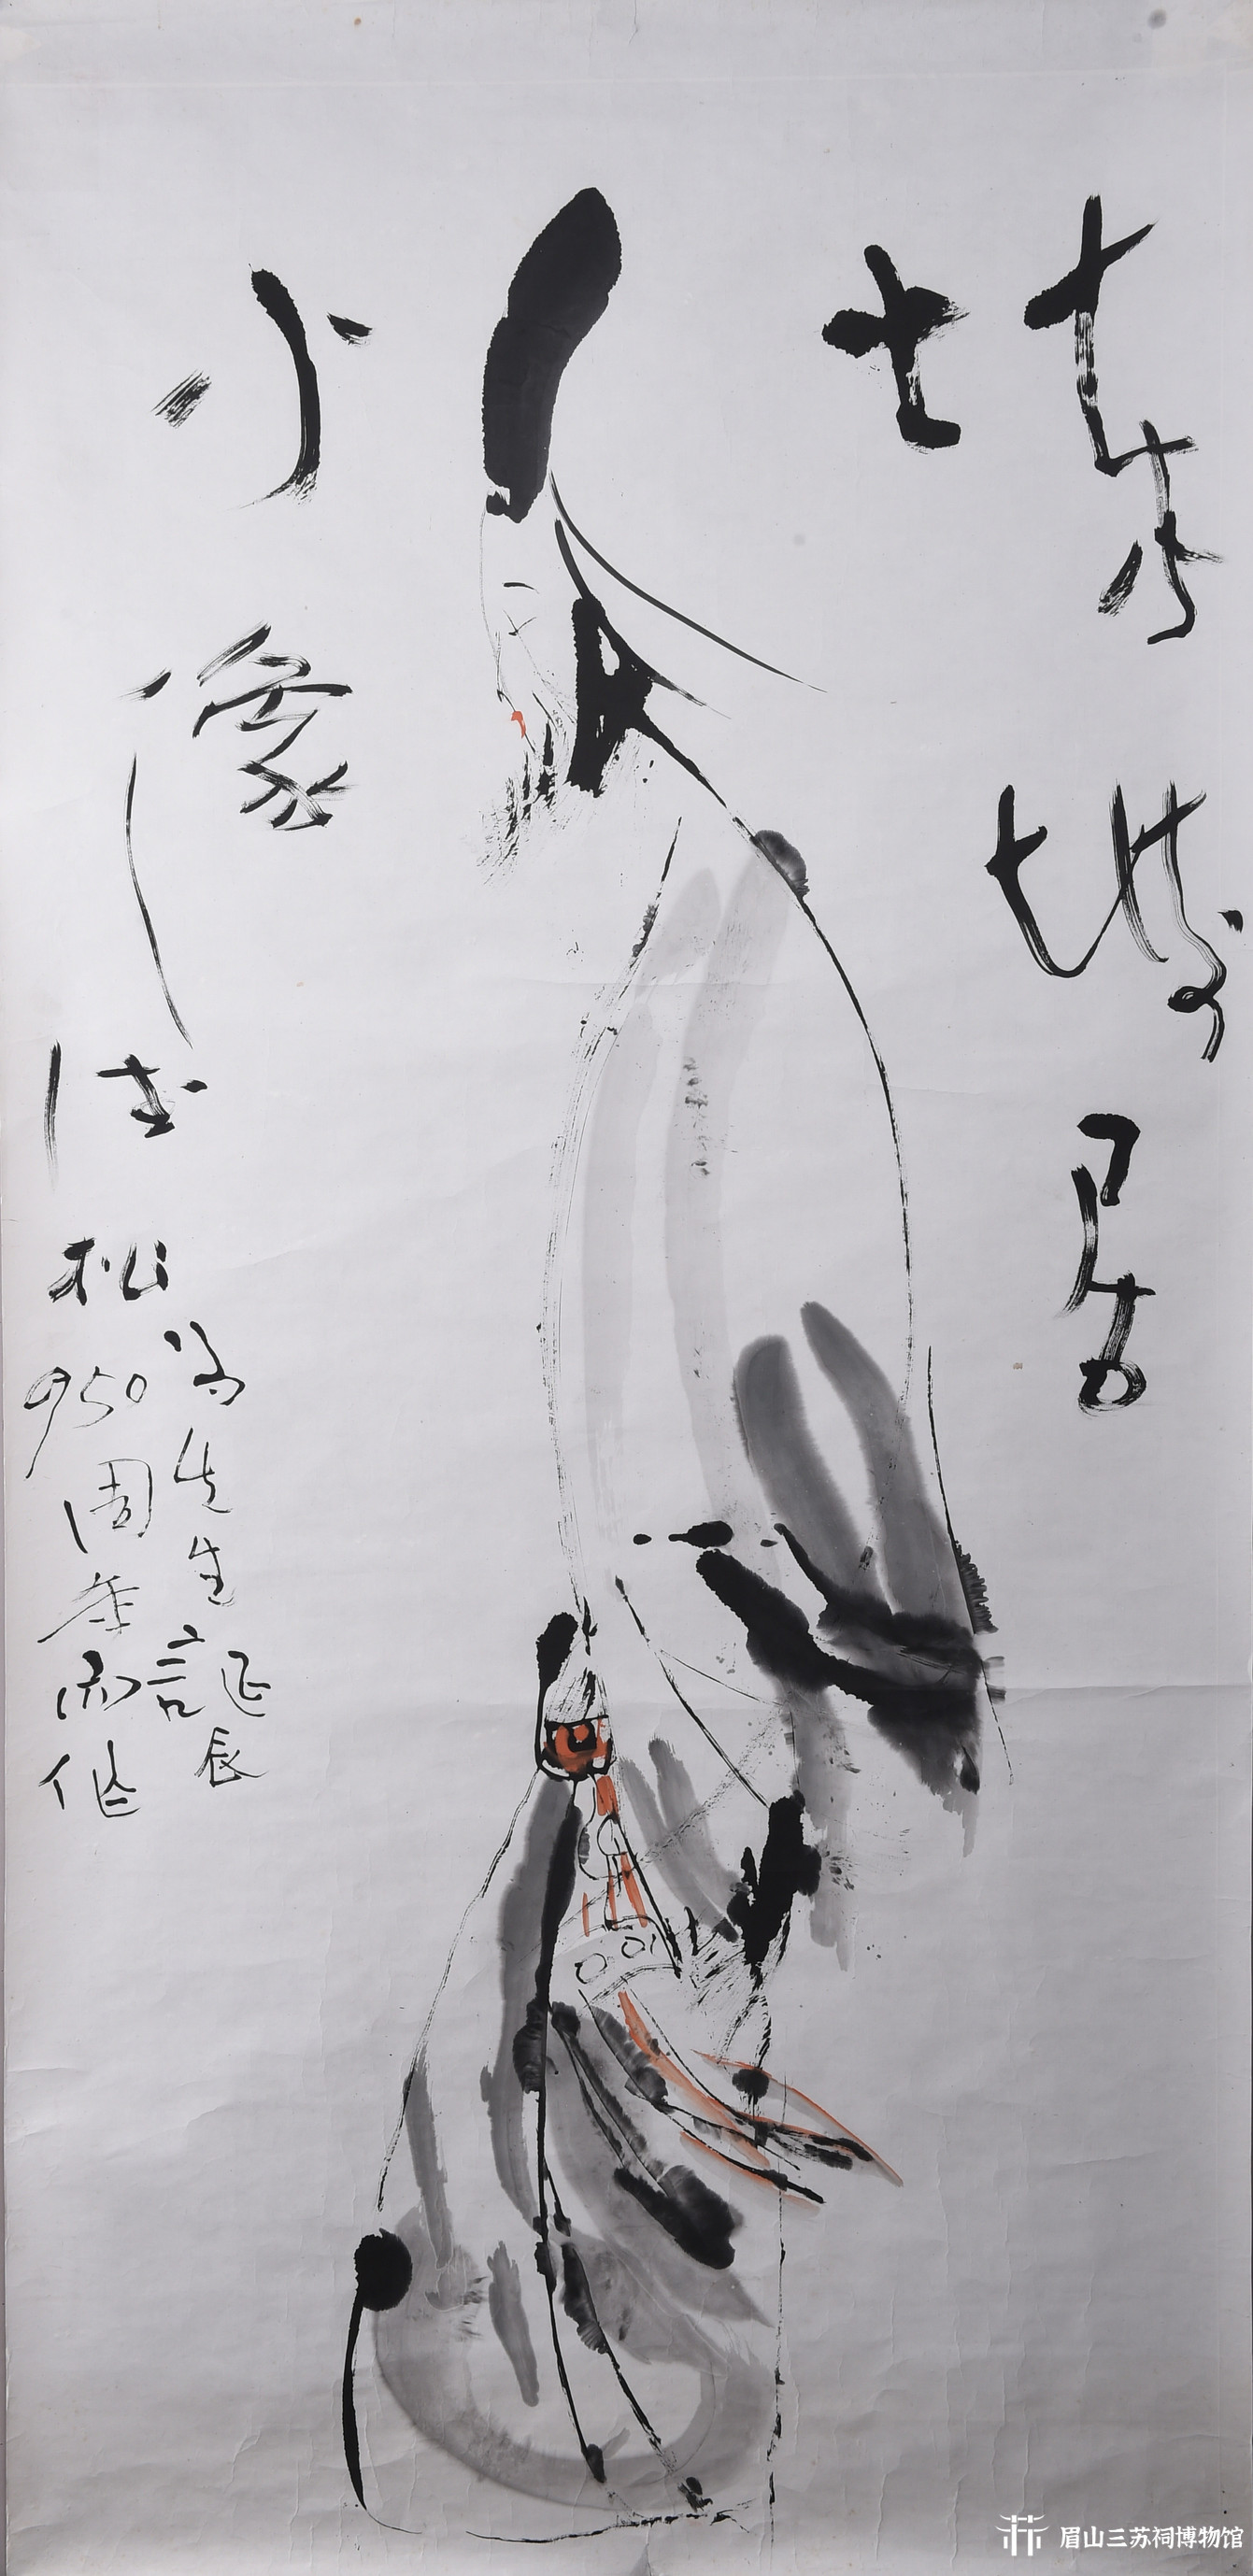 東坡居
士
小像
德松
為先生誕辰
950周年而作
眉山三苏祠博物馆